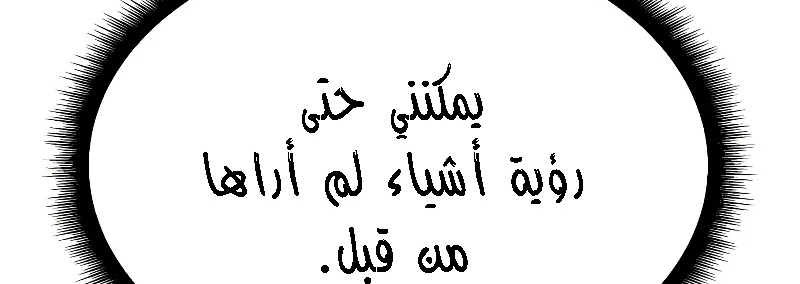 يمكنني حتى
رؤية أشياء لم أراها
من قبل.